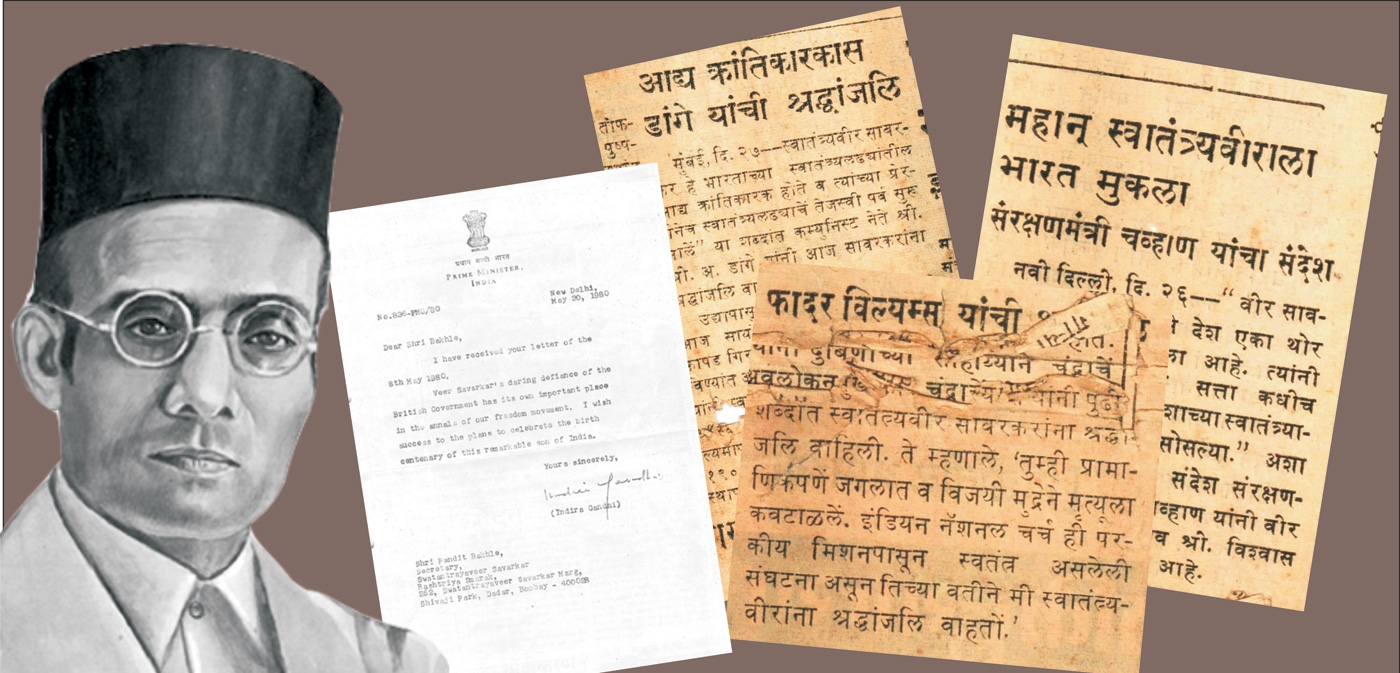 प्रधान मन्त्री भारत
PRIME MINISTER,
INDIA
New Delhi,
May 20, 1980
No.836-PMO/80
Dear Shri Bakhle,
I have received your letter of the
8th May 1980.
Veer Savarkar's daring defiance of the
British Government has its own important place
in the annals of our freedom movement. I wish
success to the plans to celebrate the birth
centenary of this remarkable son of India.
Yours sincerely,
(Indira Gandhi)
Shri Pandit Bakhle,
Secretary,
Swatantrayaveer Savarkar
Rashtriya Smarak,
252, Swatantrayaveer Savarkar Marg,
Shivaji Park, Dadar, Bombay - 400028
आद्य क्रांतिकारकास
डांगे यांची श्रद्धांजलि
मुंबई, दि. २७—स्वातंत्र्यवीर सावर-
र हे भारताच्या स्वातंत्र्यलढ्यांतील
आद्य क्रांतिकारक होते व त्यांच्या प्रेर-
नेच स्वातंत्र्यलढ्याचें तेजस्वी पर्व सुरू
झालें" या शब्दांत कम्युनिस्ट नेते श्री.
श्री. अ. डांगे यांनी आज सावरकरांना
श्रद्धांजलि वा
उद्यापासू
आज साय
फादर विल्यम्स यांची
यांनी दुर्बिणीच्या साहाय्यानें चंद्राचें
अवलोकन चंद्राचे यांनी पुढी
शब्दांत स्वातंत्र्यवीर सावरकरांना श्रद्धां
जलि वाहिली. ते म्हणाले, 'तुम्ही प्रामा-
णिकपणें जगलात व विजयी मुद्रेनें मृत्यूला
कवटाळलें. इंडियन नॅशनल चर्च ही पर-
कीय मिशनपासून स्वतंत्र असलेली
संघटना असून तिच्या वतीनें मी स्वातंत्र्य-
वीरांना श्रद्धांजलि वाहतों.'
महान् स्वातंत्र्यवीराला
भारत मुकला
संरक्षणमंत्री चव्हाण यांचा संदेश
नवी दिल्ली, दि. २६—" वीर साव-
देश एका थोर
ला आहे. त्यांनी
सत्ता कधीच
शाच्या स्वातंत्र्या-
सोसल्या." अशा
संदेश संरक्षण-
व्हाण यांनी वीर
व श्री. विश्वास
आहे.